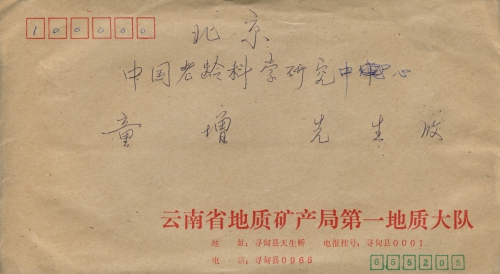 100000
北京
中国老龄科学研究中心
童增 先生 收
云南省地质矿产局第一地质大队
地 址：寻甸县天生桥 电报挂号：寻甸县0001
电 话：寻甸县0966
655205